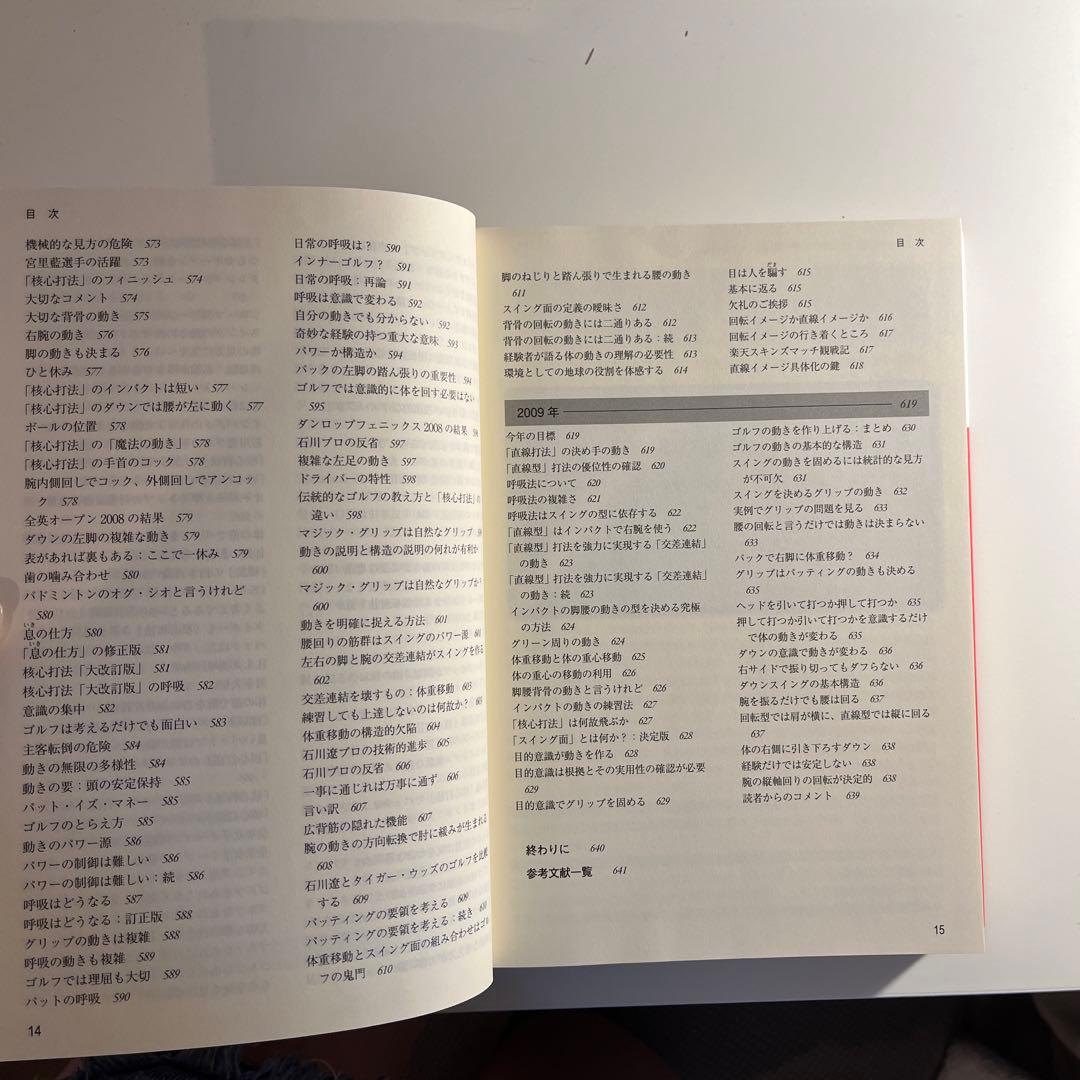 目 次
機械的な見方の危険 573
宮里藍選手の活躍 573
「核心打法」のフィニッシュ 574
大切なコメント 574
大切な背骨の動き 575
右腕の動き 576
脚の動きも決まる 576
ひと休み 577
「核心打法」のインパクトは短い 577
「核心打法」のダウンでは腰が左に動く 577
ボールの位置 578
「核心打法」の「魔法の動き」 578
「核心打法」の手首のコック 578
腕内側回しでコック、外側回しでアンコッ
ク 578
全英オープン2008の結果 579
ダウンの左脚の複雑な動き 579
表があれば裏もある：ここで一休み 579
歯の噛み合わせ 580
バドミントンのオグ・シオと言うけれど
580
息の仕方 580
「息の仕方」の修正版 581
核心打法「大改訂版」 581
核心打法「大改訂版」の呼吸 582
意識の集中 582
ゴルフは考えるだけでも面白い 583
主客転倒の危険 584
動きの無限の多様性 584
動きの要：頭の安定保持 585
パット・イズ・マネー 585
ゴルフのとらえ方 585
動きのパワー源 586
パワーの制御は難しい 586
パワーの制御は難しい：続 586
呼吸はどうなる 587
呼吸はどうなる：訂正版 588
グリップの動きは複雑 588
呼吸の動きも複雑 589
ゴルフでは理屈も大切 589
パットの呼吸 590
14
日常の呼吸は？ 590
インナーゴルフ？ 591
日常の呼吸：再論 591
呼吸は意識で変わる 592
自分の動きでも分からない 592
奇妙な経験の持つ重大な意味 593
パワーか構造か 594
バックの左脚の踏ん張りの重要性 594
ゴルフでは意識的に体を回す必要はない
595
ダンロップフェニックス2008の結果 596
石川プロの反省 597
複雑な左足の動き 597
ドライバーの特性 598
伝統的なゴルフの教え方と「核心打法」の
違い 598
マジック・グリップは自然なグリップ
動きの説明と構造の説明の何れが有利か
600
マジック・グリップは自然なグリップか
600
動きを明確に捉える方法 601
腰回りの筋群はスイングのパワー源 601
左右の脚と腕の交差連結がスイングを作る
602
交差連結を壊すもの：体重移動 603
練習しても上達しないのは何故か？ 603
体重移動の構造的欠陥 604
石川遼プロの技術的進歩 605
石川プロの反省 606
一事に通じれば万事に通ず 606
言い訳 607
広背筋の隠れた機能 607
腕の動きの方向転換で肘に緩みが生まれる
608
石川遼とタイガー・ウッズのゴルフを比較
する 609
パッティングの要領を考える 609
パッティングの要領を考える：続き 610
体重移動とスイング面の組み合わせはゴル
フの鬼門 610
目 次
脚のねじりと踏ん張りで生まれる腰の動き
611
スイング面の定義の曖昧さ 612
背骨の回転の動きには二通りある 612
背骨の回転の動きには二通りある：続 613
経験者が語る体の動きの理解の必要性 613
環境としての地球の役割を体感する 614
目は人を騙す 615
基本に返る 615
欠礼のご挨拶 615
回転イメージか直線イメージか 616
回転イメージの行き着くところ 617
楽天スキンズマッチ観戦記 617
直線イメージ具体化の鍵 618
2009年 619
今年の目標 619
「直線打法」の決め手の動き 619
「直線型」打法の優位性の確認 620
呼吸法について 620
呼吸法の複雑さ 621
呼吸法はスイングの型に依存する 622
「直線型」はインパクトで右腕を使う 622
「直線型」打法を強力に実現する「交差連結」
の動き 623
「直線型」打法を強力に実現する「交差連結」
の動き：続 623
インパクトの脚腰の動きの型を決める究極
の方法 624
グリーン周りの動き 624
体重移動と体の重心移動 625
体の重心の移動の利用 626
脚腰背骨の動きと言うけれど 626
インパクトの動きの練習法 627
「核心打法」は何故飛ぶか 627
「スイング面」とは何か？：決定版 628
目的意識が動きを作る 628
目的意識は根拠とその実用性の確認が必要
629
目的意識でグリップを固める 629
ゴルフの動きを作り上げる：まとめ 630
ゴルフの動きの基本的な構造 631
スイングの動きを固めるには統計的な見方
が不可欠 631
スイングを決めるグリップの動き 632
実例でグリップの問題を見る 633
腰の回転と言うだけでは動きは決まらない
633
バックで右脚に体重移動？ 634
グリップはパッティングの動きも決める
635
ヘッドを引いて打つか押して打つか 635
押して打つか引いて打つかを意識するだけ
で体の動きが変わる 635
ダウンの意識で動きが変わる 636
右サイドで振り切ってもダフらない 636
ダウンスイングの基本構造 636
腕を振るだけでも腰は回る 637
回転型では肩が横に、直線型では縦に回る
637
体の右側に引き下ろすダウン 638
経験だけでは安定しない 638
腕の縦軸回りの回転が決定的 638
読者からのコメント 639
終わりに 640
参考文献一覧 641
15